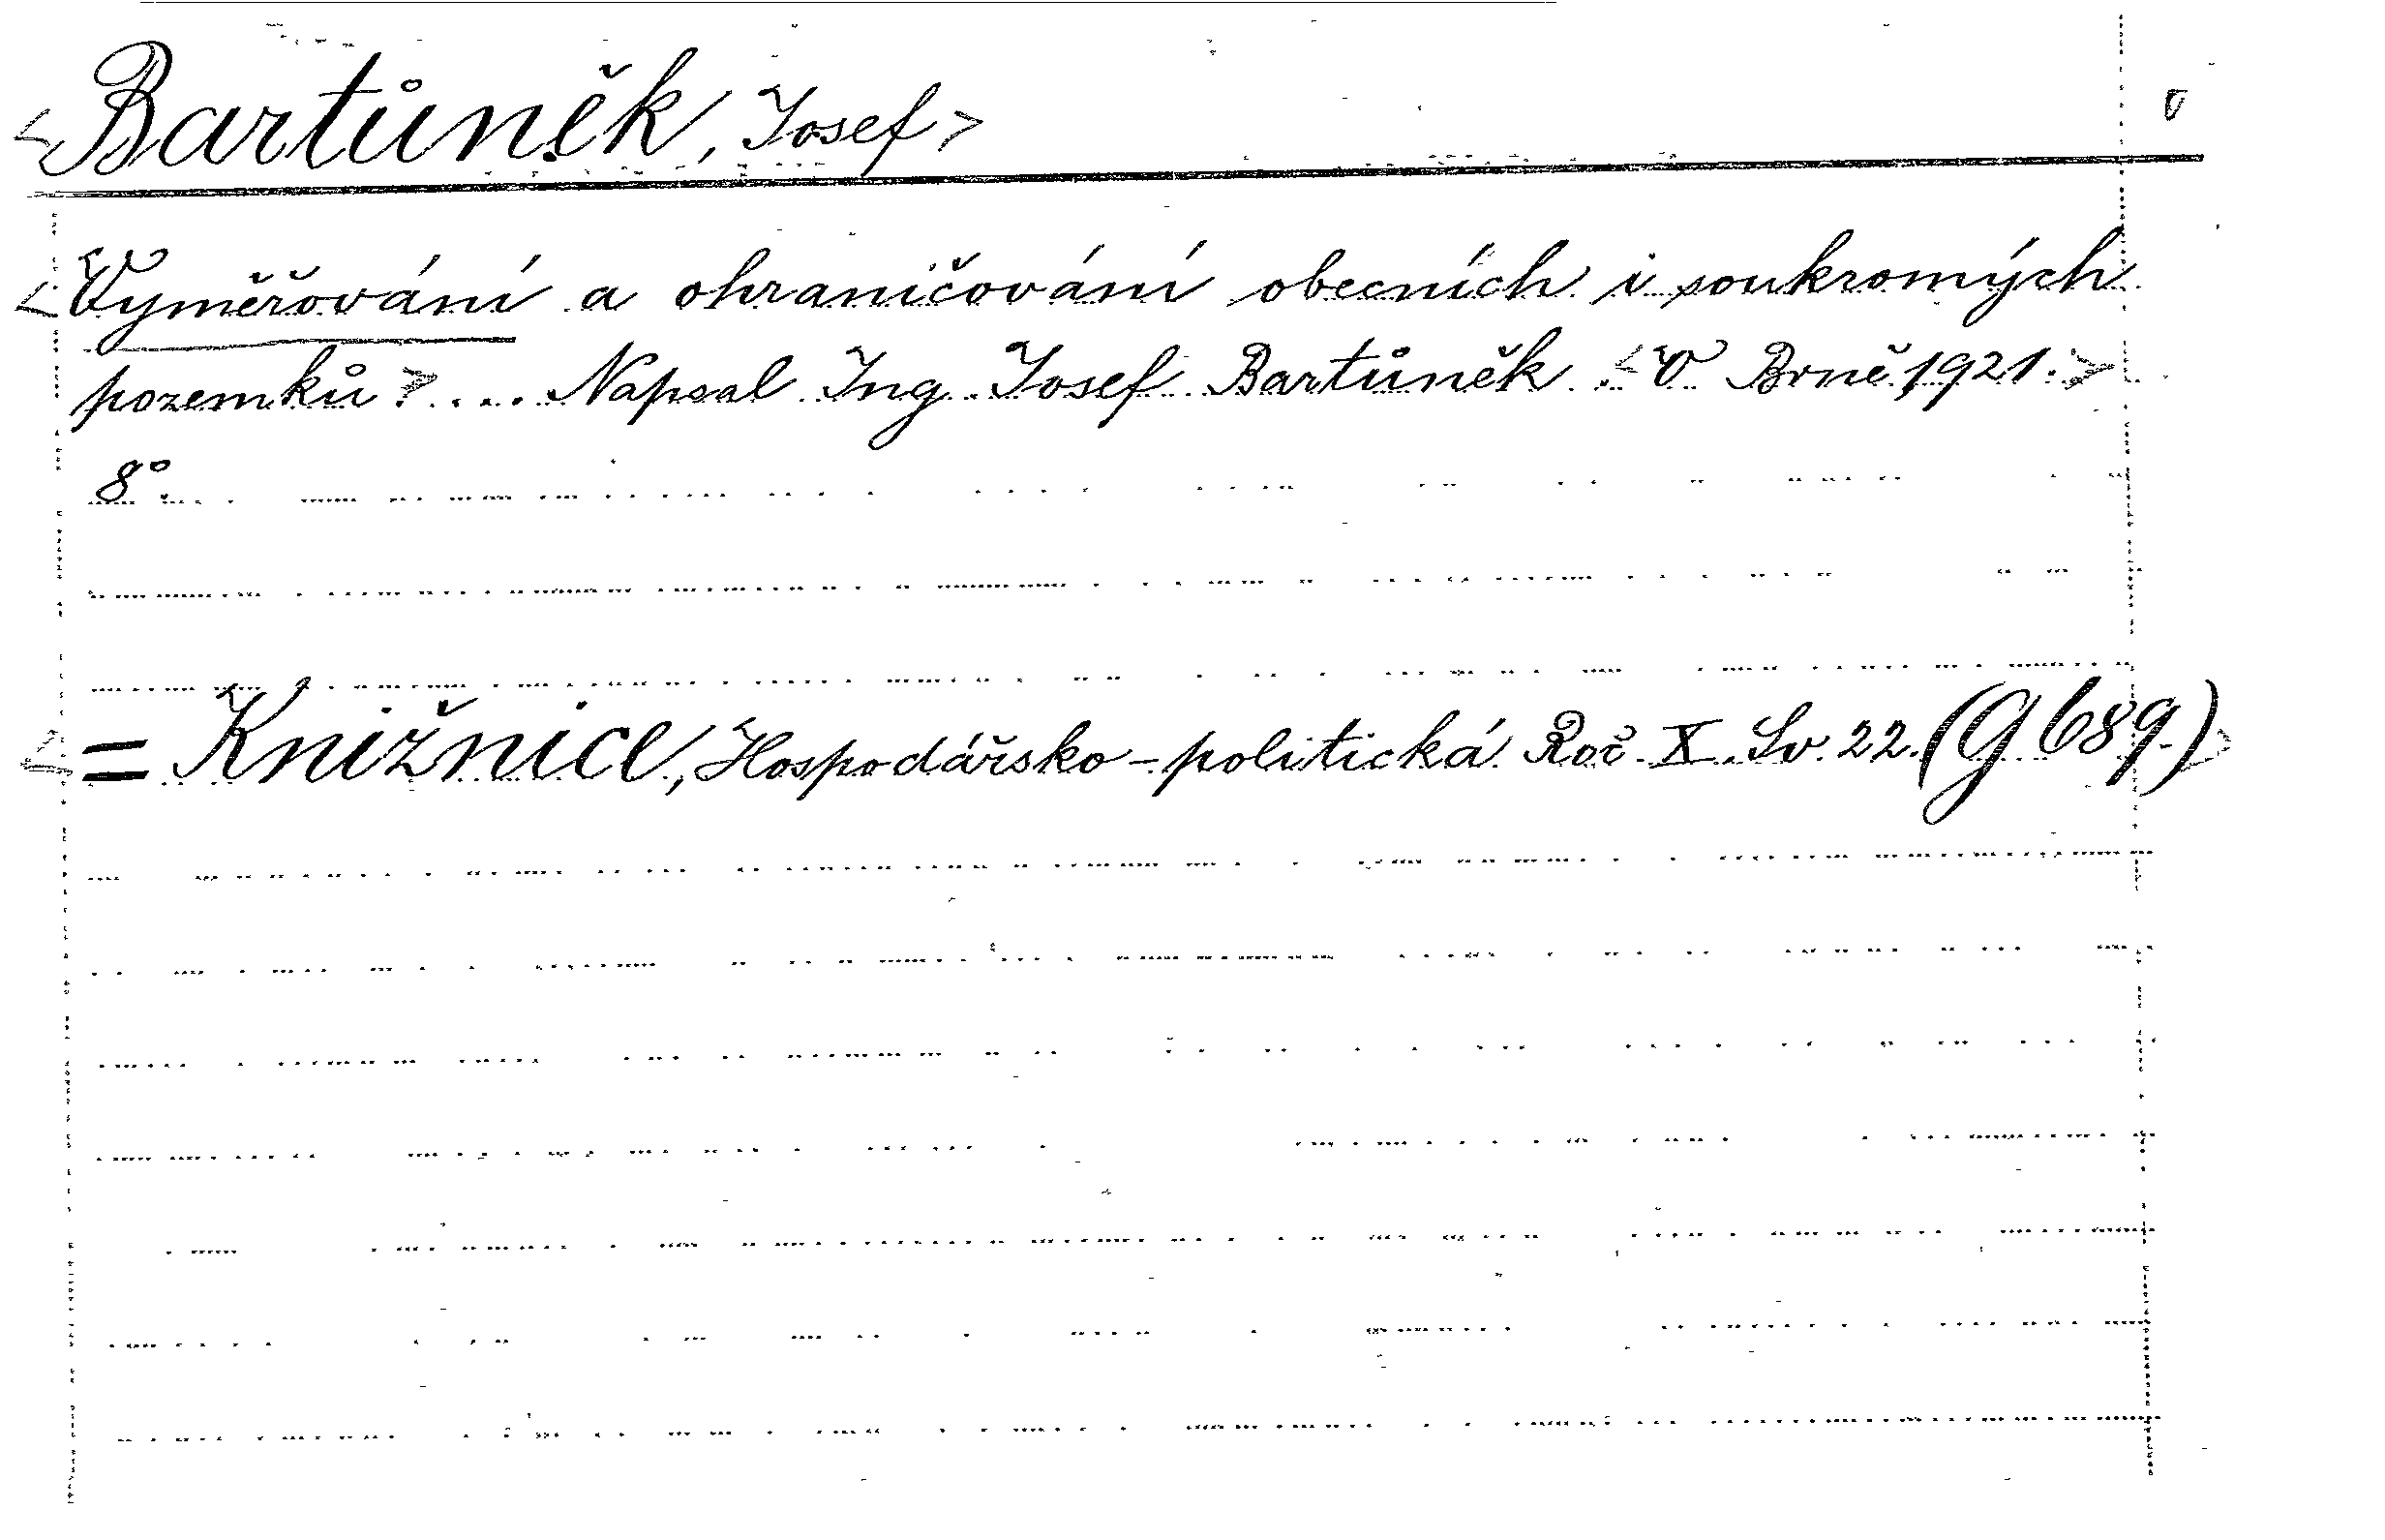 <Bartůněk, Josef>
<Vyměřování a ohraničování obecních i soukromých
pozemků>.... Napsal Ing. Josef Bartůněk. <V Brně, 1921.>
8°
<= Knižnice, Hospodářsko-politická Roč. X. Sv. 22. (G 689.)>